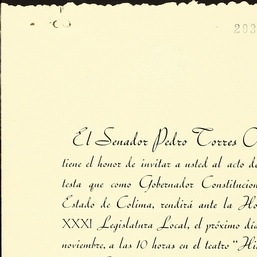 203
El Senador Pedro Torres O
tiene el honor de invitar a usted al acto de
testa que como Gobernador Constitucion
Estado de Colima, rendirá ante la Ho
XXXI Legislatura Local, el próximo día
noviembre, a las 10 horas en el teatro "Hi